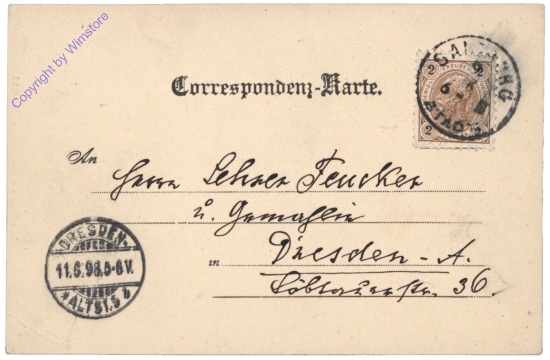 Copyright by Wimstore
2 KREUZER 2
SALZBURG
STADT
2 2
Correspondenz-Karte.
An
Herrn Lehrer Feucker
u. Gemahlin
in Dresden-A.
Löbtauerstr. 36.
DRESDEN-
11.6.98.5-6V.
*ALTST.5 b